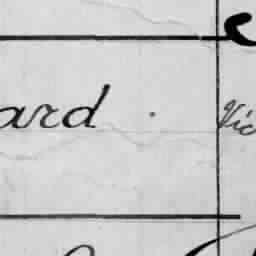 ard . Vic